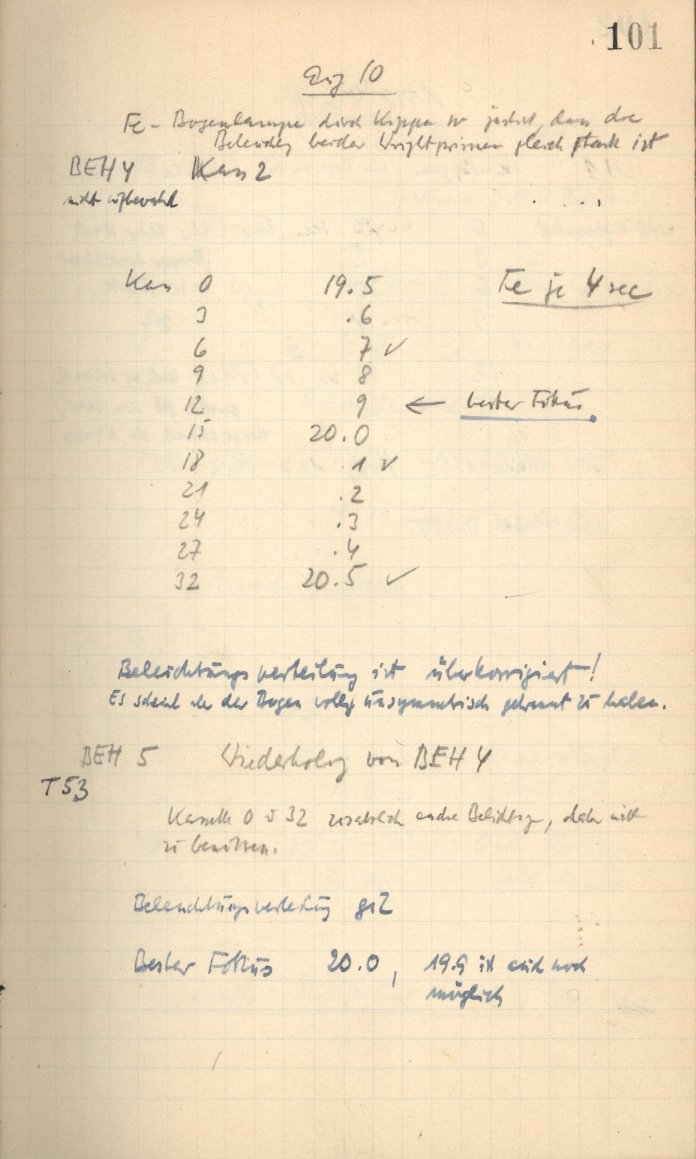 101
Aug 10
Fe-Bogenlampe durch Kippen so justiert, dass die
Beleuchtg beider Wrightprismen gleich stark ist
BEH 4 Kass 2
nicht aufbewahrt
Kass 0 19.5 Fe je 4 sec
3 .6
6 7 ✓
9 8
12 9 ← bester Fokus
15 20.0
18 .1 ✓
21 .2
24 .3
27 .4
32 20.5 ✓
Beleuchtungsverteilung ist überkorrigiert!
Es scheint aber der Bogen völlig unsymmetrisch gebrannt zu haben.
BEH 5 Wiederholg von BEH 4
T53
Kassette 0 u 32 zusätzlich andre Belichtg, daher nicht
zu benützen.
Beleuchtungsverteilung gut
Bester Fokus 20.0, 19.9 ist auch noch
möglich